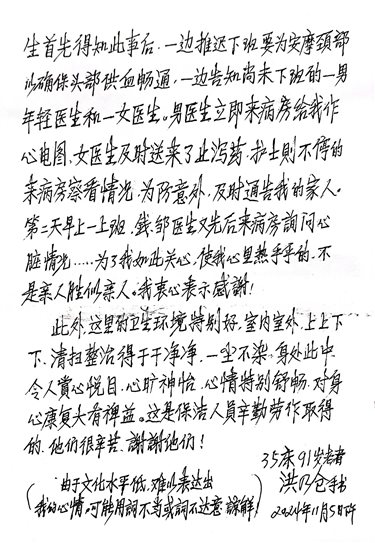 生首先得知此事后，一边推迟下班要为安摩颈部
以确保头部供血畅通，一边告知尚未下班的一男
年轻医生和一女医生。男医生立即来病房给我作
心电图，女医生及时送来了止泻药，护士则不停的
来病房察看情况，为防意外，及时通告我的家人。
第二天早上一上班，钱、邹医生又先后来病房詢问心
脏情况……为了我如此关心，使我心里热乎乎的，不
是亲人胜似亲人。我衷心表示感謝！
此外，这里的卫生环境特别好，室内室外，上上下
下，清扫整治得干干净净，一尘不染，身处此中，
令人賞心悦目，心旷神怡，心情特别舒畅，对身
心康复大有裨益。这是保洁人员辛勤劳作取得
的，他们很辛苦，謝謝他们！
35床91岁老者
洪乃仓手书
2024年11月5日下午
（由于文化水平低，难以表达出
我的心情，可能用詞不当或詞不达意，諒解！）